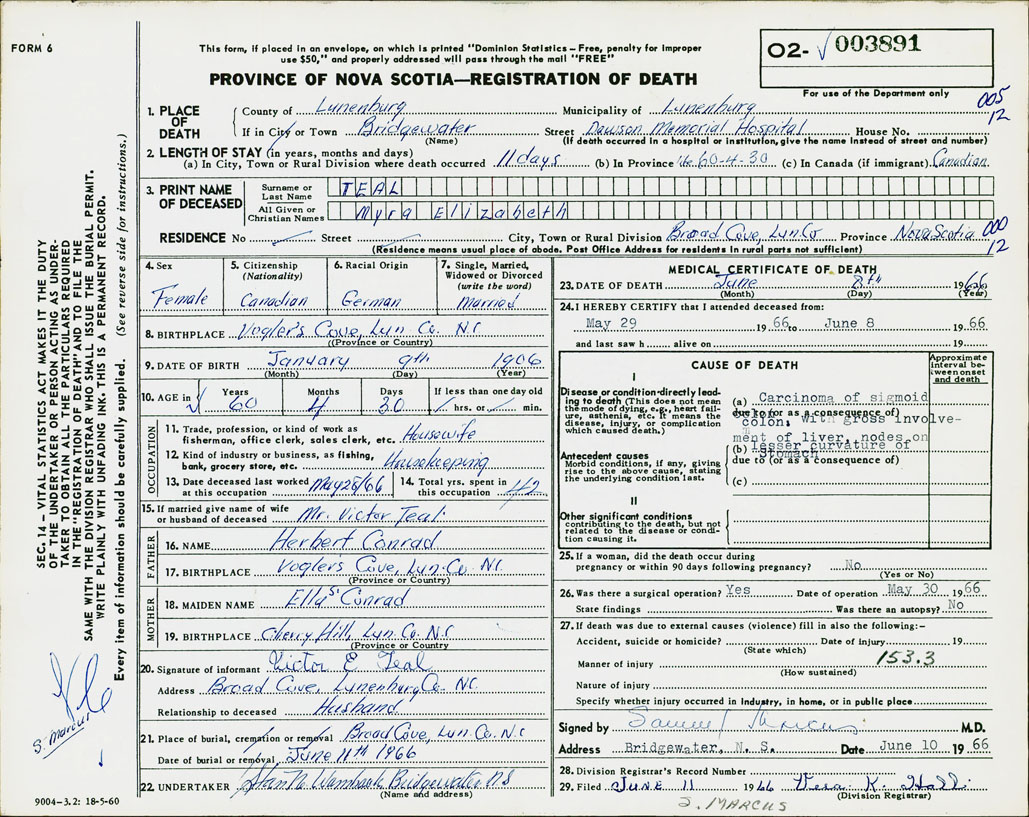 FORM 6
This form, if placed in an envelope, on which is printed "Dominion Statistics – Free, penalty for improper
use $50," and properly addressed will pass through the mail "FREE"
PROVINCE OF NOVA SCOTIA—REGISTRATION OF DEATH
O2- √ 003891
For use of the Department only
005
12
1. PLACE OF DEATH
County of Lunenburg Municipality of Lunenburg
If in City or Town Bridgewater Street Dawson Memorial Hospital House No.
(Name) (If death occurred in a hospital or institution, give the name instead of street and number)
2. LENGTH OF STAY (in years, months and days)
(a) In City, Town or Rural Division where death occurred 11 days (b) In Province 60-4-30 (c) In Canada (if immigrant) Canadian
3. PRINT NAME OF DECEASED
Surname or Last Name TEAL
All Given or Christian Names Myra Elizabeth
RESIDENCE No Street City, Town or Rural Division Broad Cove, Lun. Co Province Nova Scotia
000
12
(Residence means usual place of abode. Post Office Address for residents in rural parts not sufficient)
4. Sex
Female
5. Citizenship
(Nationality)
Canadian
6. Racial Origin
German
7. Single, Married, Widowed or Divorced
(write the word)
Married
8. BIRTHPLACE Vogler's Cove, Lun. Co. N.S
(Province or Country)
9. DATE OF BIRTH January 9th 1906
(Month) (Day) (Year)
10. AGE in √ Years 60 Months 4 Days 30 If less than one day old hrs. or min.
OCCUPATION
11. Trade, profession, or kind of work as
fisherman, office clerk, sales clerk, etc. Housewife
12. Kind of industry or business, as fishing,
bank, grocery store, etc. Housekeeping
13. Date deceased last worked
at this occupation May 28/66
14. Total yrs. spent in
this occupation 42
15. If married give name of wife
or husband of deceased Mr. Victor Teal
FATHER
16. NAME Herbert Conrad
17. BIRTHPLACE Voglers Cove, Lun. Co N.S
(Province or Country)
MOTHER
18. MAIDEN NAME Ella S. Conrad
19. BIRTHPLACE Cherry Hill, Lun. Co. N.S
(Province or Country)
20. Signature of informant Victor E Teal
Address Broad Cove, Lunenburg Co. N.S.
Relationship to deceased Husband
21. Place of burial, cremation or removal Broad Cove, Lun. Co. N.S
Date of burial or removal June 11th 1966
22. UNDERTAKER Bridgewater N S
(Name and address)
MEDICAL CERTIFICATE OF DEATH
23. DATE OF DEATH June 8th 1966
(Month) (Day) (Year)
24. I HEREBY CERTIFY that I attended deceased from:
May 29 1966 to June 8 1966
and last saw h alive on 19
CAUSE OF DEATH
Approximate interval between onset and death
I
Disease or condition directly leading to death (This does not mean the mode of dying, e.g., heart failure, asthenia, etc. It means the disease, injury, or complication which caused death.)
(a) Carcinoma of sigmoid
due to (or as a consequence of)
colon, with gross involve-
ment of liver, nodes on
(b) lesser curvature of
Stomach
due to (or as a consequence of)
(c)
Antecedent causes
Morbid conditions, if any, giving rise to the above cause, stating the underlying condition last.
II
Other significant conditions
contributing to the death, but not related to the disease or condition causing it.
25. If a woman, did the death occur during
pregnancy or within 90 days following pregnancy? No
(Yes or No)
26. Was there a surgical operation? Yes Date of operation May 30 1966
State findings Was there an autopsy? No
27. If death was due to external causes (violence) fill in also the following:–
Accident, suicide or homicide? Date of injury 19
(State which)
153.3
Manner of injury
(How sustained)
Nature of injury
Specify whether injury occurred in industry, in home, or in public place
Signed by Samuel Marcus M.D.
Address Bridgewater, N. S. Date June 10 1966
28. Division Registrar's Record Number
29. Filed JUNE 11 1966 Vera K. Hall
(Division Registrar)
S. MARCUS
SEC. 14 – VITAL STATISTICS ACT MAKES IT THE DUTY
OF THE UNDERTAKER OR PERSON ACTING AS UNDER-
TAKER TO OBTAIN ALL THE PARTICULARS REQUIRED
IN THE "REGISTRATION OF DEATH" AND TO FILE THE
SAME WITH THE DIVISION REGISTRAR WHO SHALL ISSUE THE BURIAL PERMIT.
WRITE PLAINLY WITH UNFADING INK. THIS IS A PERMANENT RECORD.
Every item of information should be carefully supplied. (See reverse side for instructions.)
S. Marcus
9004-3.2: 18-5-60